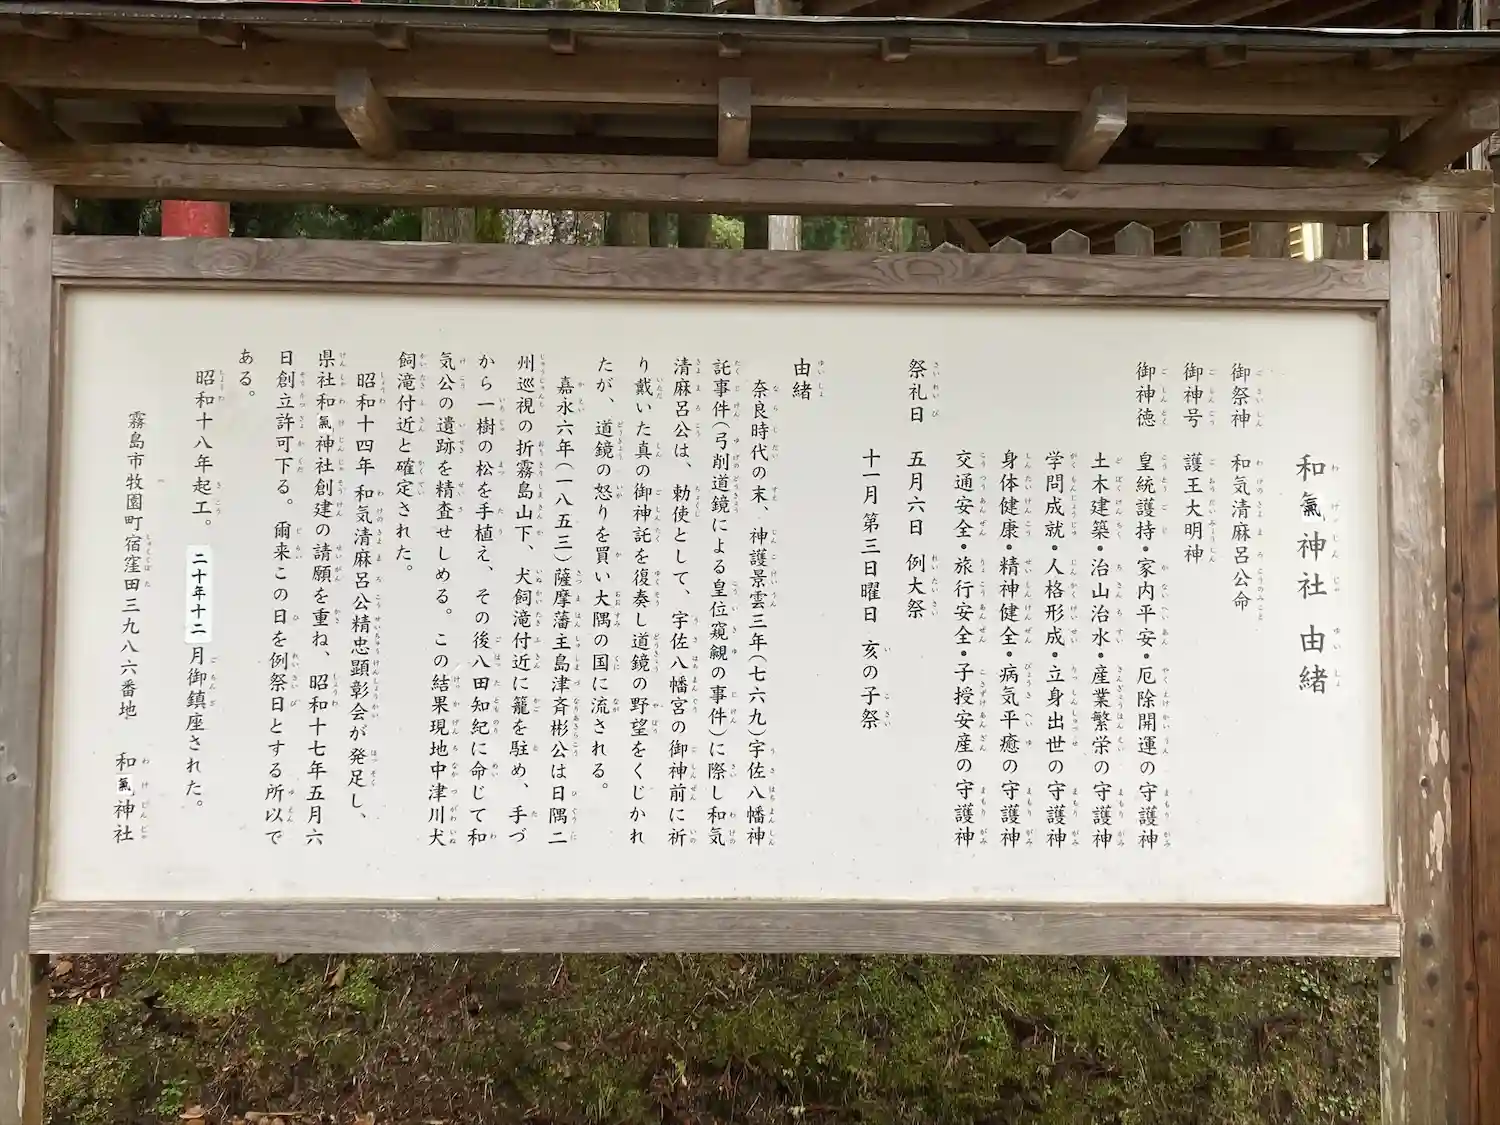 和氣神社 由緒
御祭神 和気清麻呂公命
御神号 護王大明神
御神徳 皇統護持・家内平安・厄除開運の守護神
土木建築・治山治水・産業繁栄の守護神
学問成就・人格形成・立身出世の守護神
身体健康・精神健全・病気平癒の守護神
交通安全・旅行安全・子授安産の守護神
祭礼日 五月六日 例大祭
十一月第三日曜日 亥の子祭
由緒
奈良時代の末、神護景雲三年(七六九)宇佐八幡神
託事件(弓削道鏡による皇位窺覦の事件)に際し和気
清麻呂公は、勅使として、宇佐八幡宮の御神前に祈
り戴いた真の御神託を復奏し道鏡の野望をくじかれ
たが、道鏡の怒りを買い大隅の国に流される。
嘉永六年(一八五三)薩摩藩主島津斉彬公は日隅二
州巡視の折霧島山下、犬飼滝付近に籠を駐め、手づ
から一樹の松を手植え、その後八田知紀に命じて和
気公の遺跡を精査せしめる。この結果現地中津川犬
飼滝付近と確定された。
昭和十四年 和気清麻呂公精忠顕彰会が発足し、
県社和氣神社創建の請願を重ね、昭和十七年五月六
日創立許可下る。爾来この日を例祭日とする所以で
ある。
昭和十八年起工。二十年十二月御鎮座された。
霧島市牧園町宿窪田三九八六番地 和氣神社